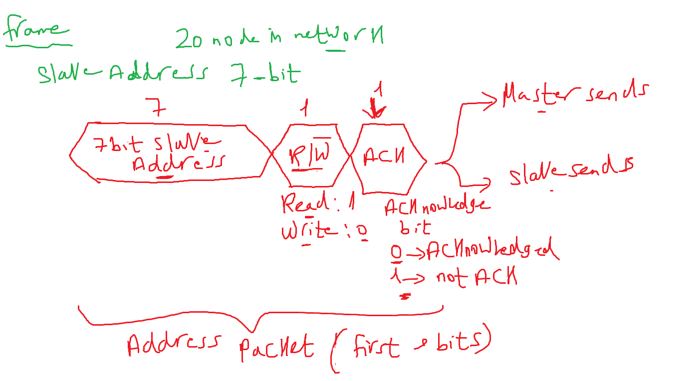 frame
20 node in network
Slave Address 7-bit
7
1
1
7bit slave
Address
R/W̅
ACK
Master sends
Slave sends
Read: 1
Write: 0
ACKnowledge
bit
0 → ACKnowledged
1 → not ACK
Address Packet (first 9 bits)